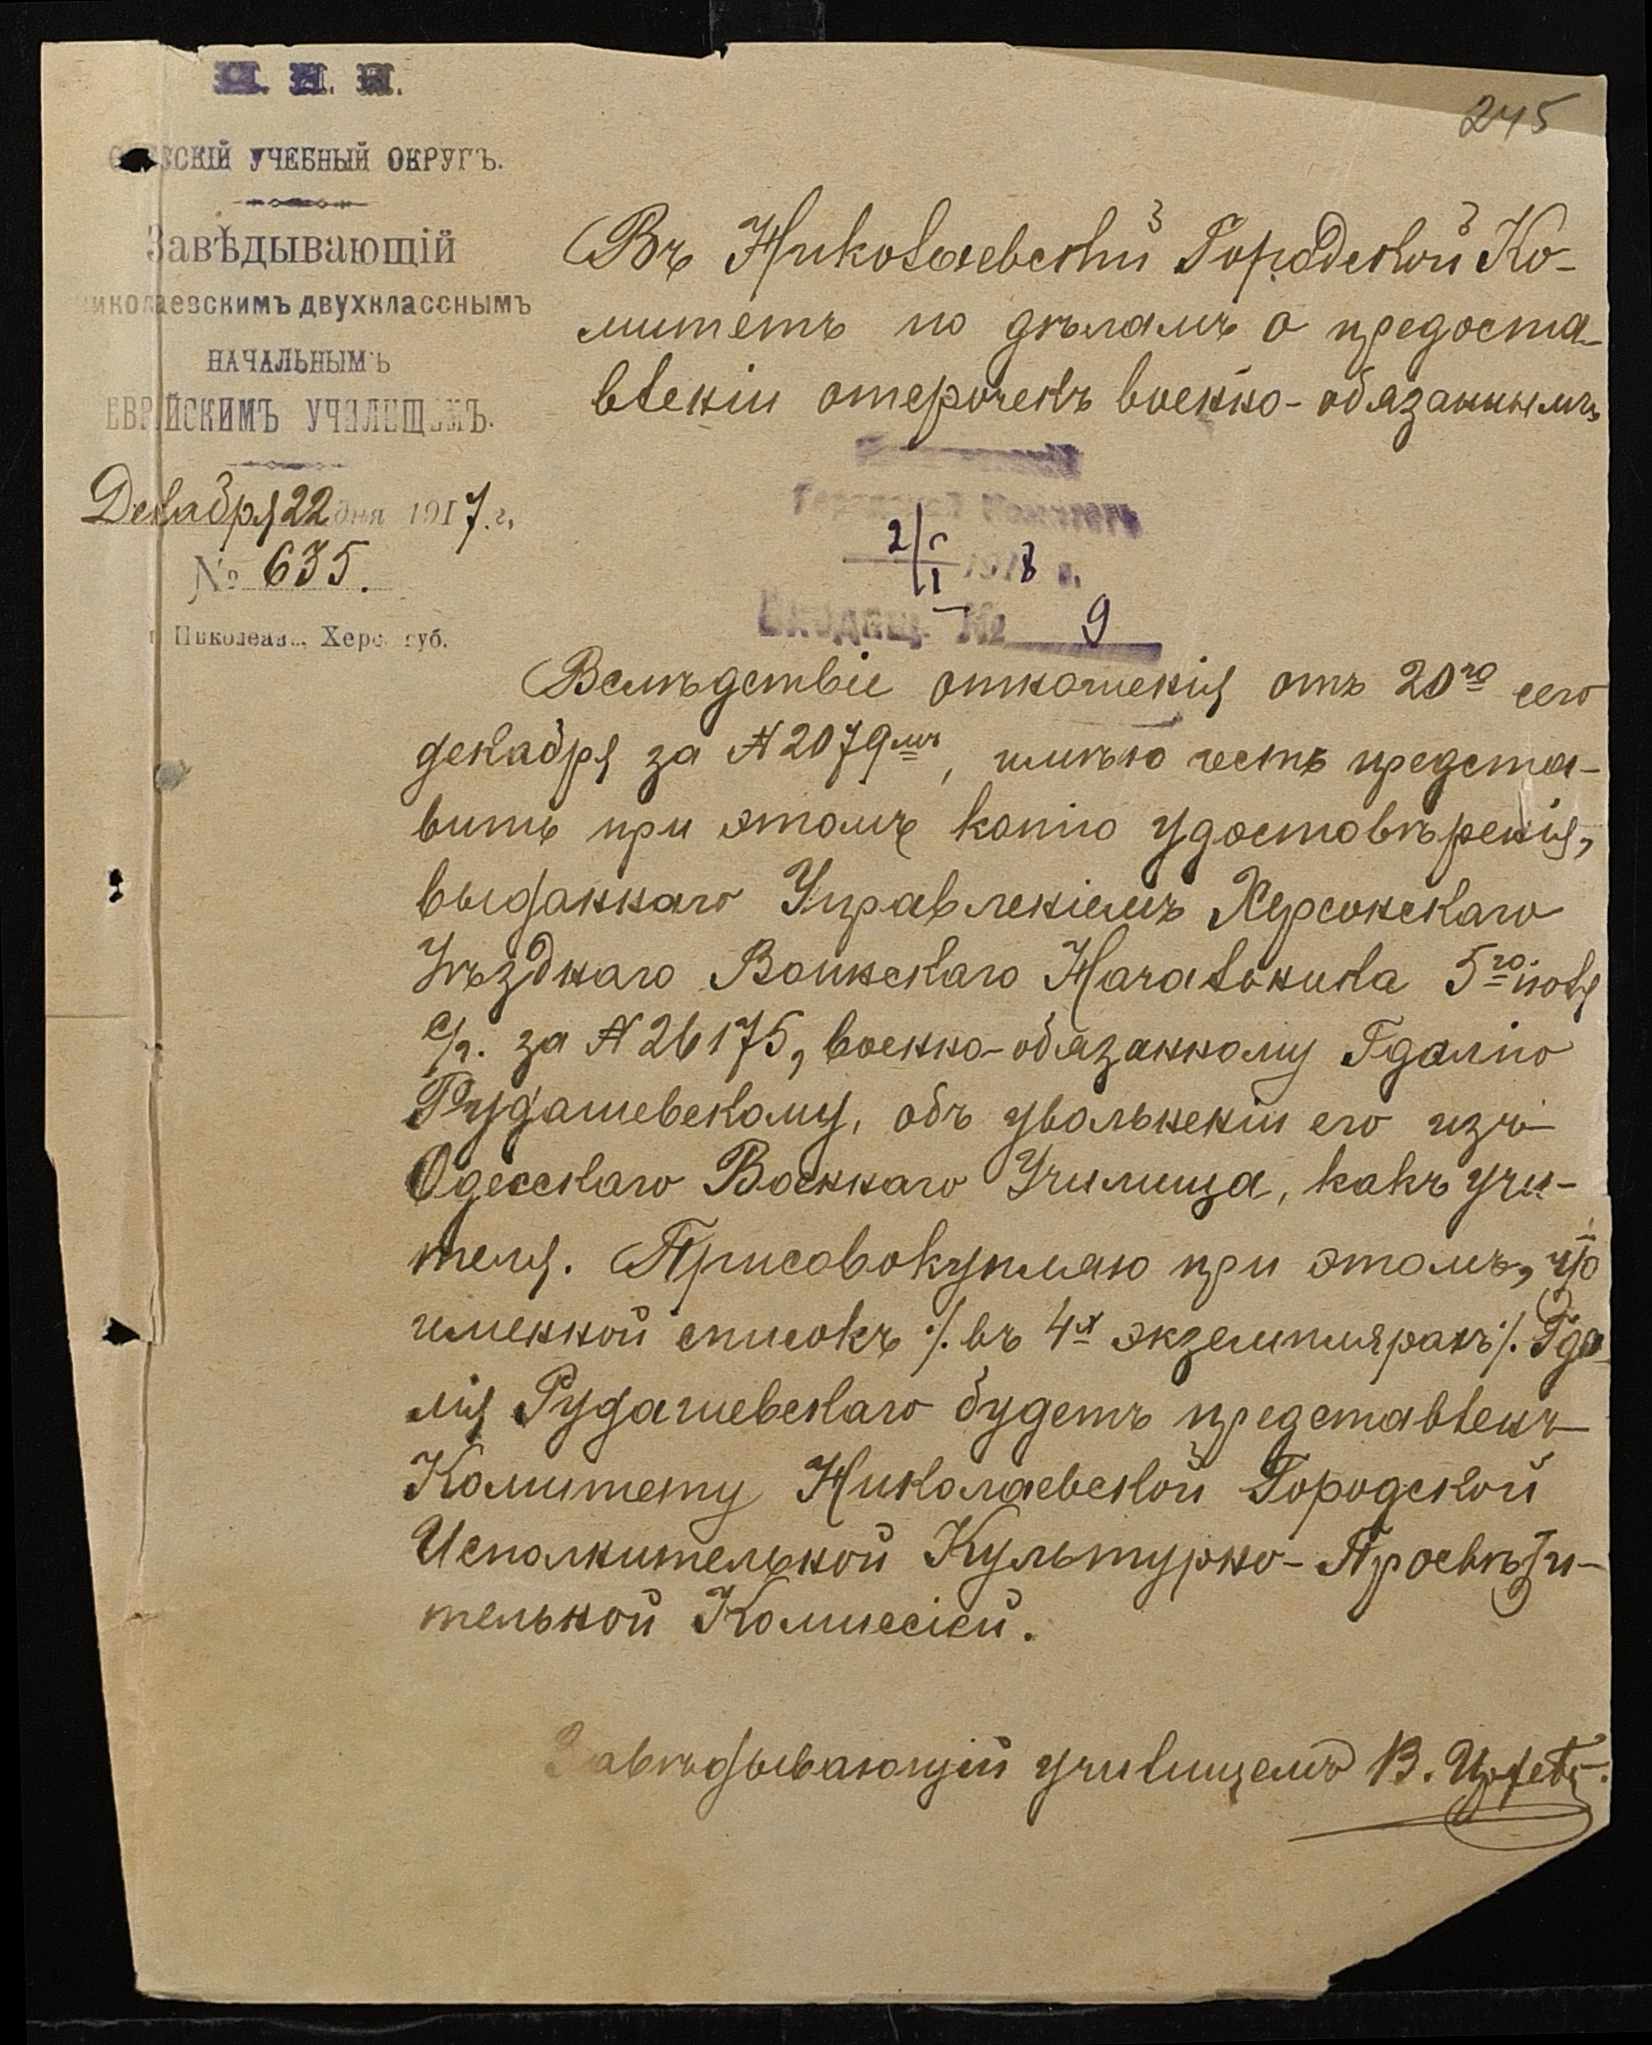 М. Н. П.
245
ОДЕССКІЙ УЧЕБНЫЙ ОКРУГЪ.
Завѣдывающій
Николаевскимъ двухкласснымъ
НАЧАЛЬНЫМЪ
ЕВРЕЙСКИМЪ УЧИЛИЩЕМЪ.
Декабря 22 дня 1917 г.
№ 635.
г. Николаевъ, Херс. губ.
Въ Николаевскій Городской Ко-
митетъ по дѣламъ о предоста-
вленіи отсрочекъ военно-обязаннымъ
Городской Комитетъ
2/I 1918 г.
Входящ. № 9
Вслѣдствіе отношенія отъ 20го сего
декабря за № 2079мъ, имѣю честь предста-
вить при этомъ копію удостовѣренія,
выданнаго Управленіемъ Херсонскаго
Уѣзднаго Воинскаго Начальника 5го іюля
с/г. за № 26175, военно-обязанному Гдалію
Рудашевскому, объ увольненіи его изъ
Одесскаго Военнаго Училища, какъ учи-
теля. Присовокупляю при этомъ, что
именной списокъ ./. въ 4х экземплярахъ ./. Гда-
лія Рудашевскаго будетъ представленъ
Комитету Николаевской Городской
Исполнительной Культурно-Просвѣти-
тельной Комиссіей.
Завѣдывающій училищемъ В.